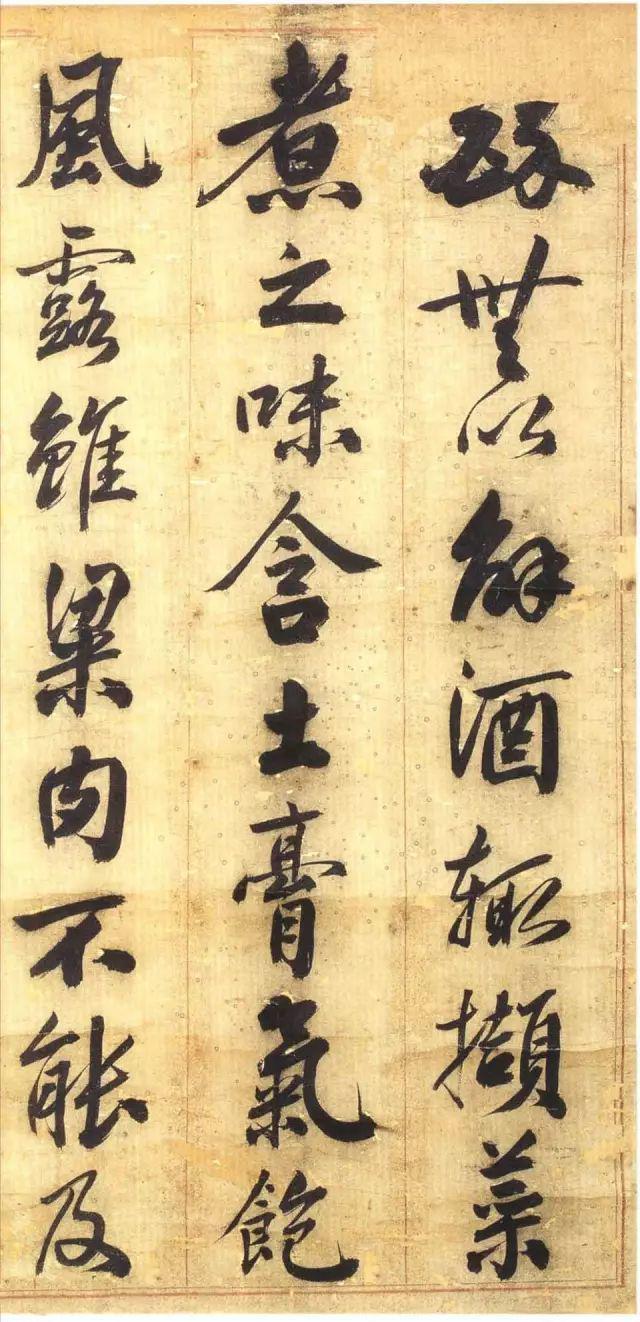 醉無以解酒輒擷菜
煮之味含土膏氣飽
風露雖粱肉不能及